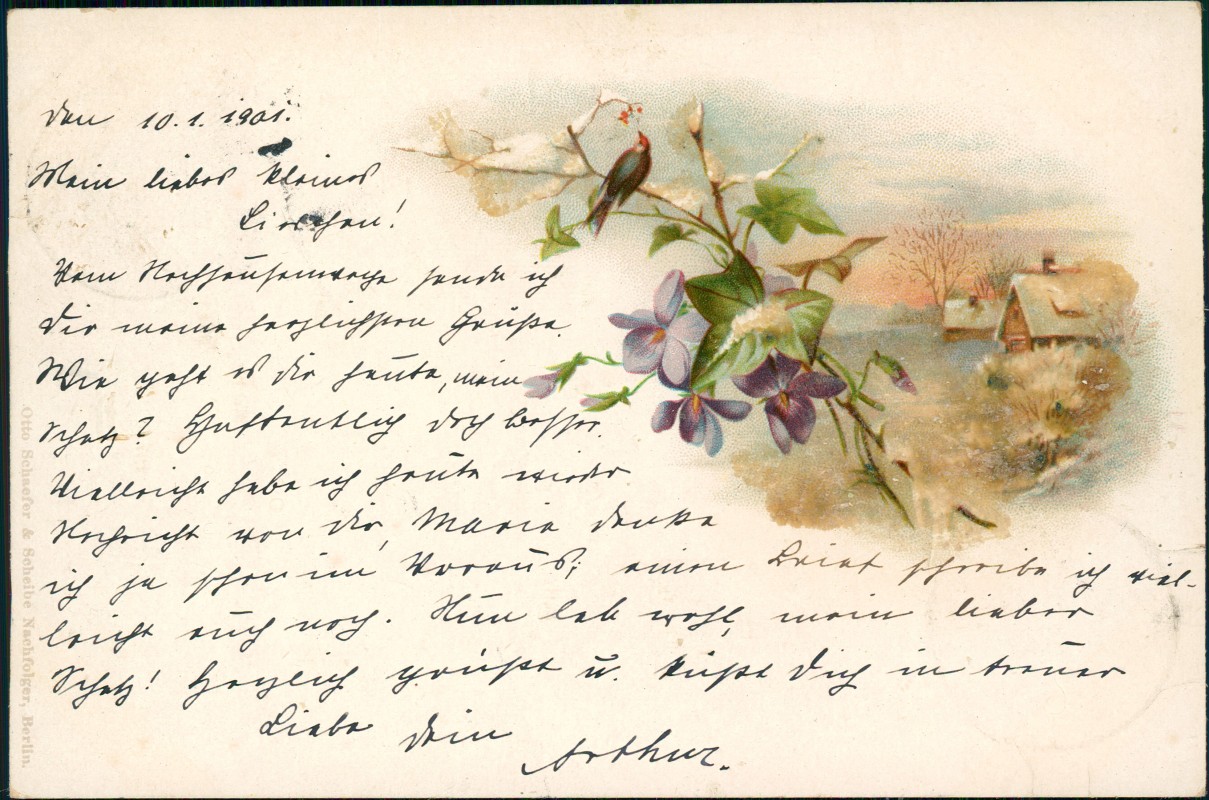 den 10.1.1901.
Mein liebes kleines
Lieschen!
Vom Nachhausewege sende ich
Dir meine herzlichsten Grüße.
Wie geht es dir heute, mein
Schatz? Hoffentlich doch besser.
Vielleicht habe ich heute wieder
Nachricht von dir, Maria danke
ich ja schon im Voraus; einen Brief schreibe ich viel-
leicht auch noch. Nun leb wohl, mein lieber
Schatz! Herzlich grüßt u. küßt Dich in treuer
Liebe dein
Arthur.
Otto Schaefer & Scheibe Nachfolger, Berlin.